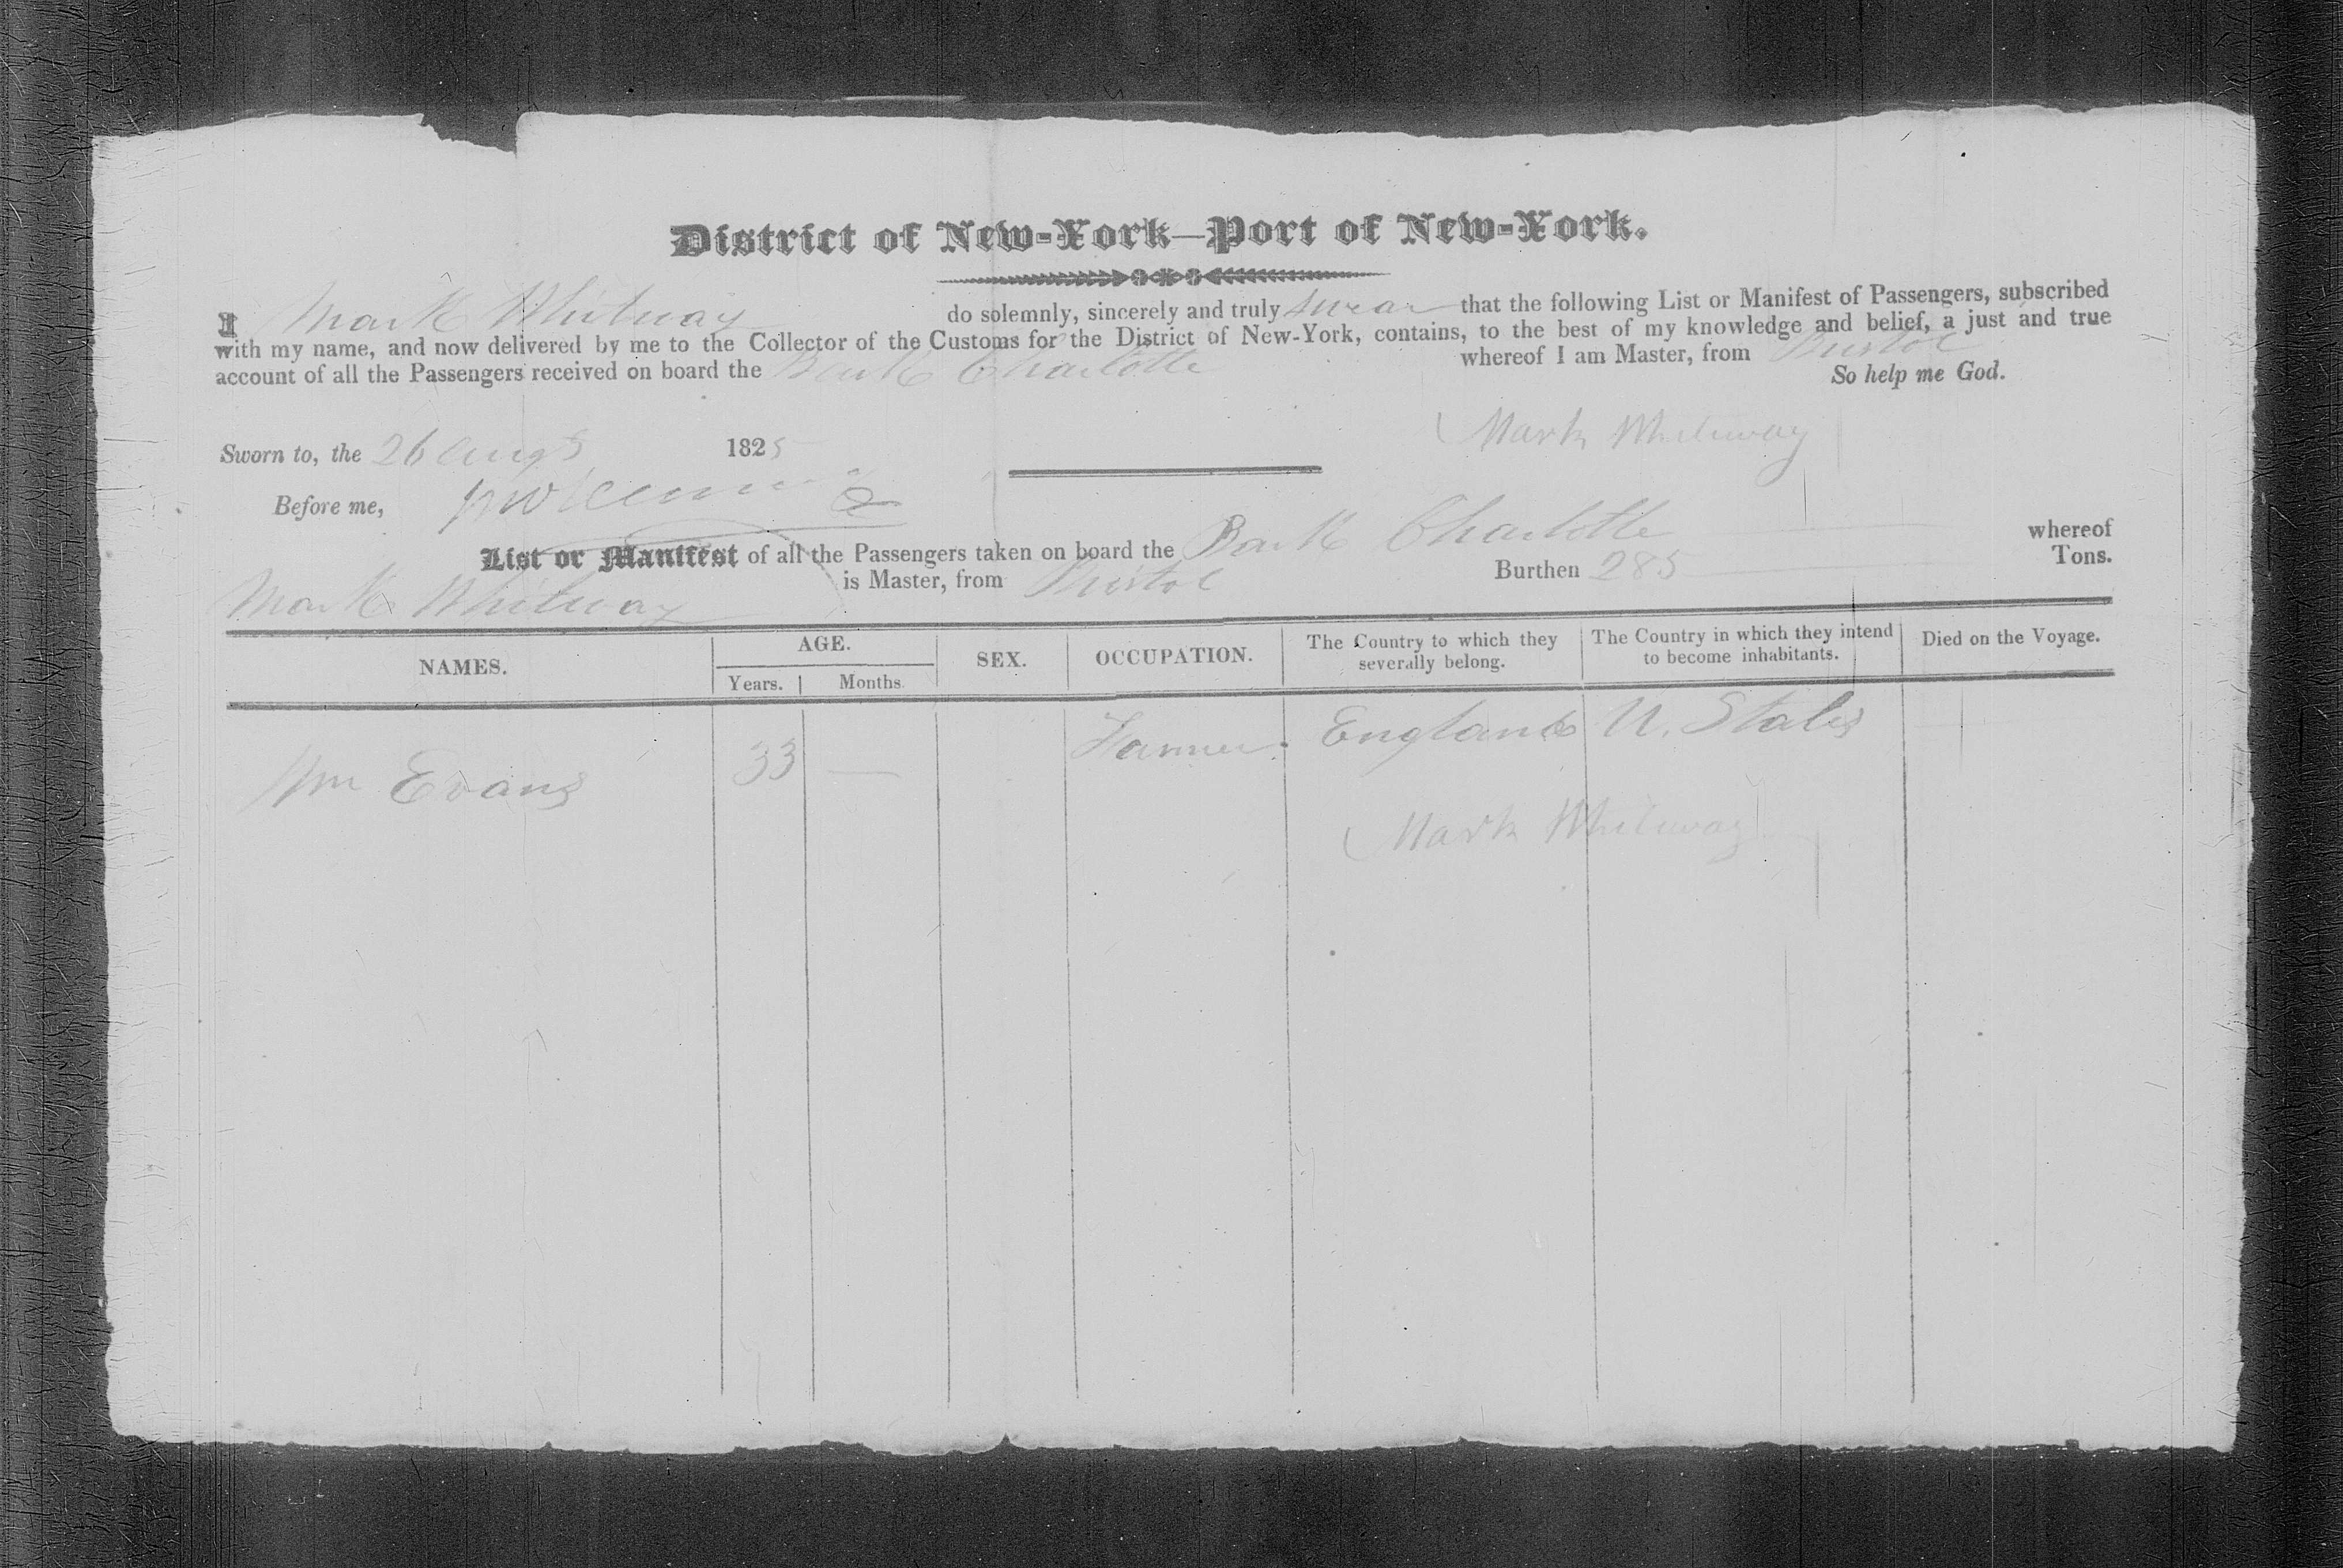 District of New-York—Port of New-York.
I Mark Whitway do solemnly, sincerely and truly swear that the following List or Manifest of Passengers, subscribed
with my name, and now delivered by me to the Collector of the Customs for the District of New-York, contains, to the best of my knowledge and belief, a just and true
account of all the Passengers received on board the Bark Charlotte whereof I am Master, from Bristol
So help me God.
Mark Whitway
Sworn to, the 26 Augt 1825
Before me,
List or Manifest of all the Passengers taken on board the Bark Charlotte whereof
Mark Whitway is Master, from Bristol Burthen 285 Tons.
NAMES. AGE. SEX. OCCUPATION. The Country to which they severally belong. The Country in which they intend to become inhabitants. Died on the Voyage.
Years. Months.
Wm Evans 33 — Farmer. England U. States
Mark Whitway